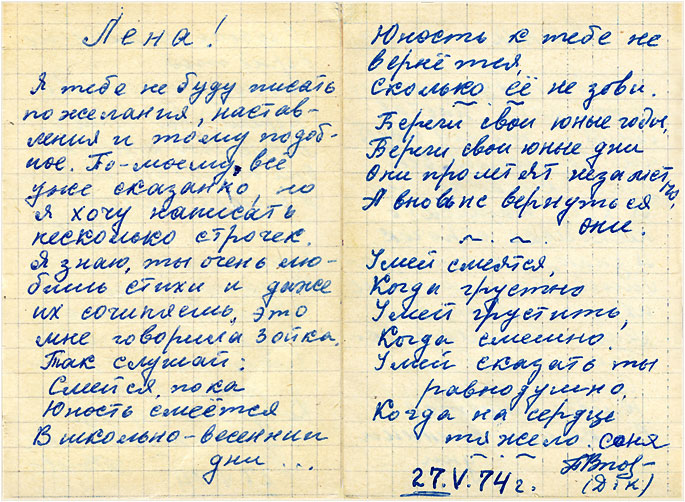 Лена!
Я тебе не буду писать
пожелания, настав-
ления и тому подоб-
ное. По-моему, всё
уже сказанно, но
я хочу написать
несколько строчек.
Я знаю, ты очень лю-
бишь стихи и даже
их сочиняешь, это
мне говорила Зойка.
Так слушай:
Смейся, пока
Юность смеётся
В школьно-весеннии
дни ...
Юность к тебе не
вернётся,
сколько её не зови.
Береги свои юные годы,
Береги свои юные дни
Они пролетят незаметно,
А вновь не вернуться
они.
Умей смеятся,
Когда грустно
Умей грустить,
Когда смешно.
Умей сказать ты
равнодушно,
Когда на сердце
тяжело. Соня
27.V.74 г.